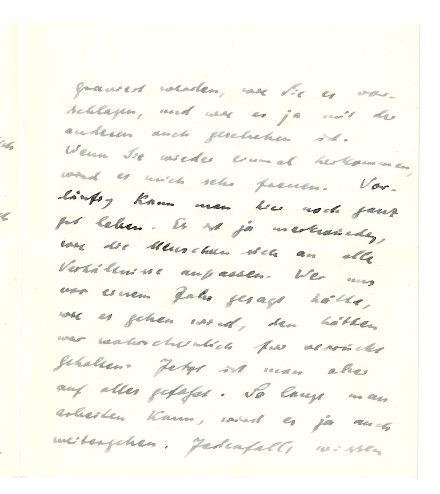 graviert werden, wie Sie es vor-
schlagen, und wie es ja mit der
anderen auch geschehen ist.
Wenn Sie wieder einmal herkommen,
wird es mich sehr freuen. Vor-
läufig kann man hier noch ganz
gut leben. Es ist ja merkwürdig,
wie die Menschen sich an alle
Verhältnisse anpassen. Wer uns
vor einem Jahr gesagt hätte,
wie es gehen wird, den hätten
wir wahrscheinlich für verrückt
gehalten. Jetzt ist man aber
auf alles gefasst. So lange man
arbeiten kann, wird es ja auch
weitergehen. Jedenfalls wissen